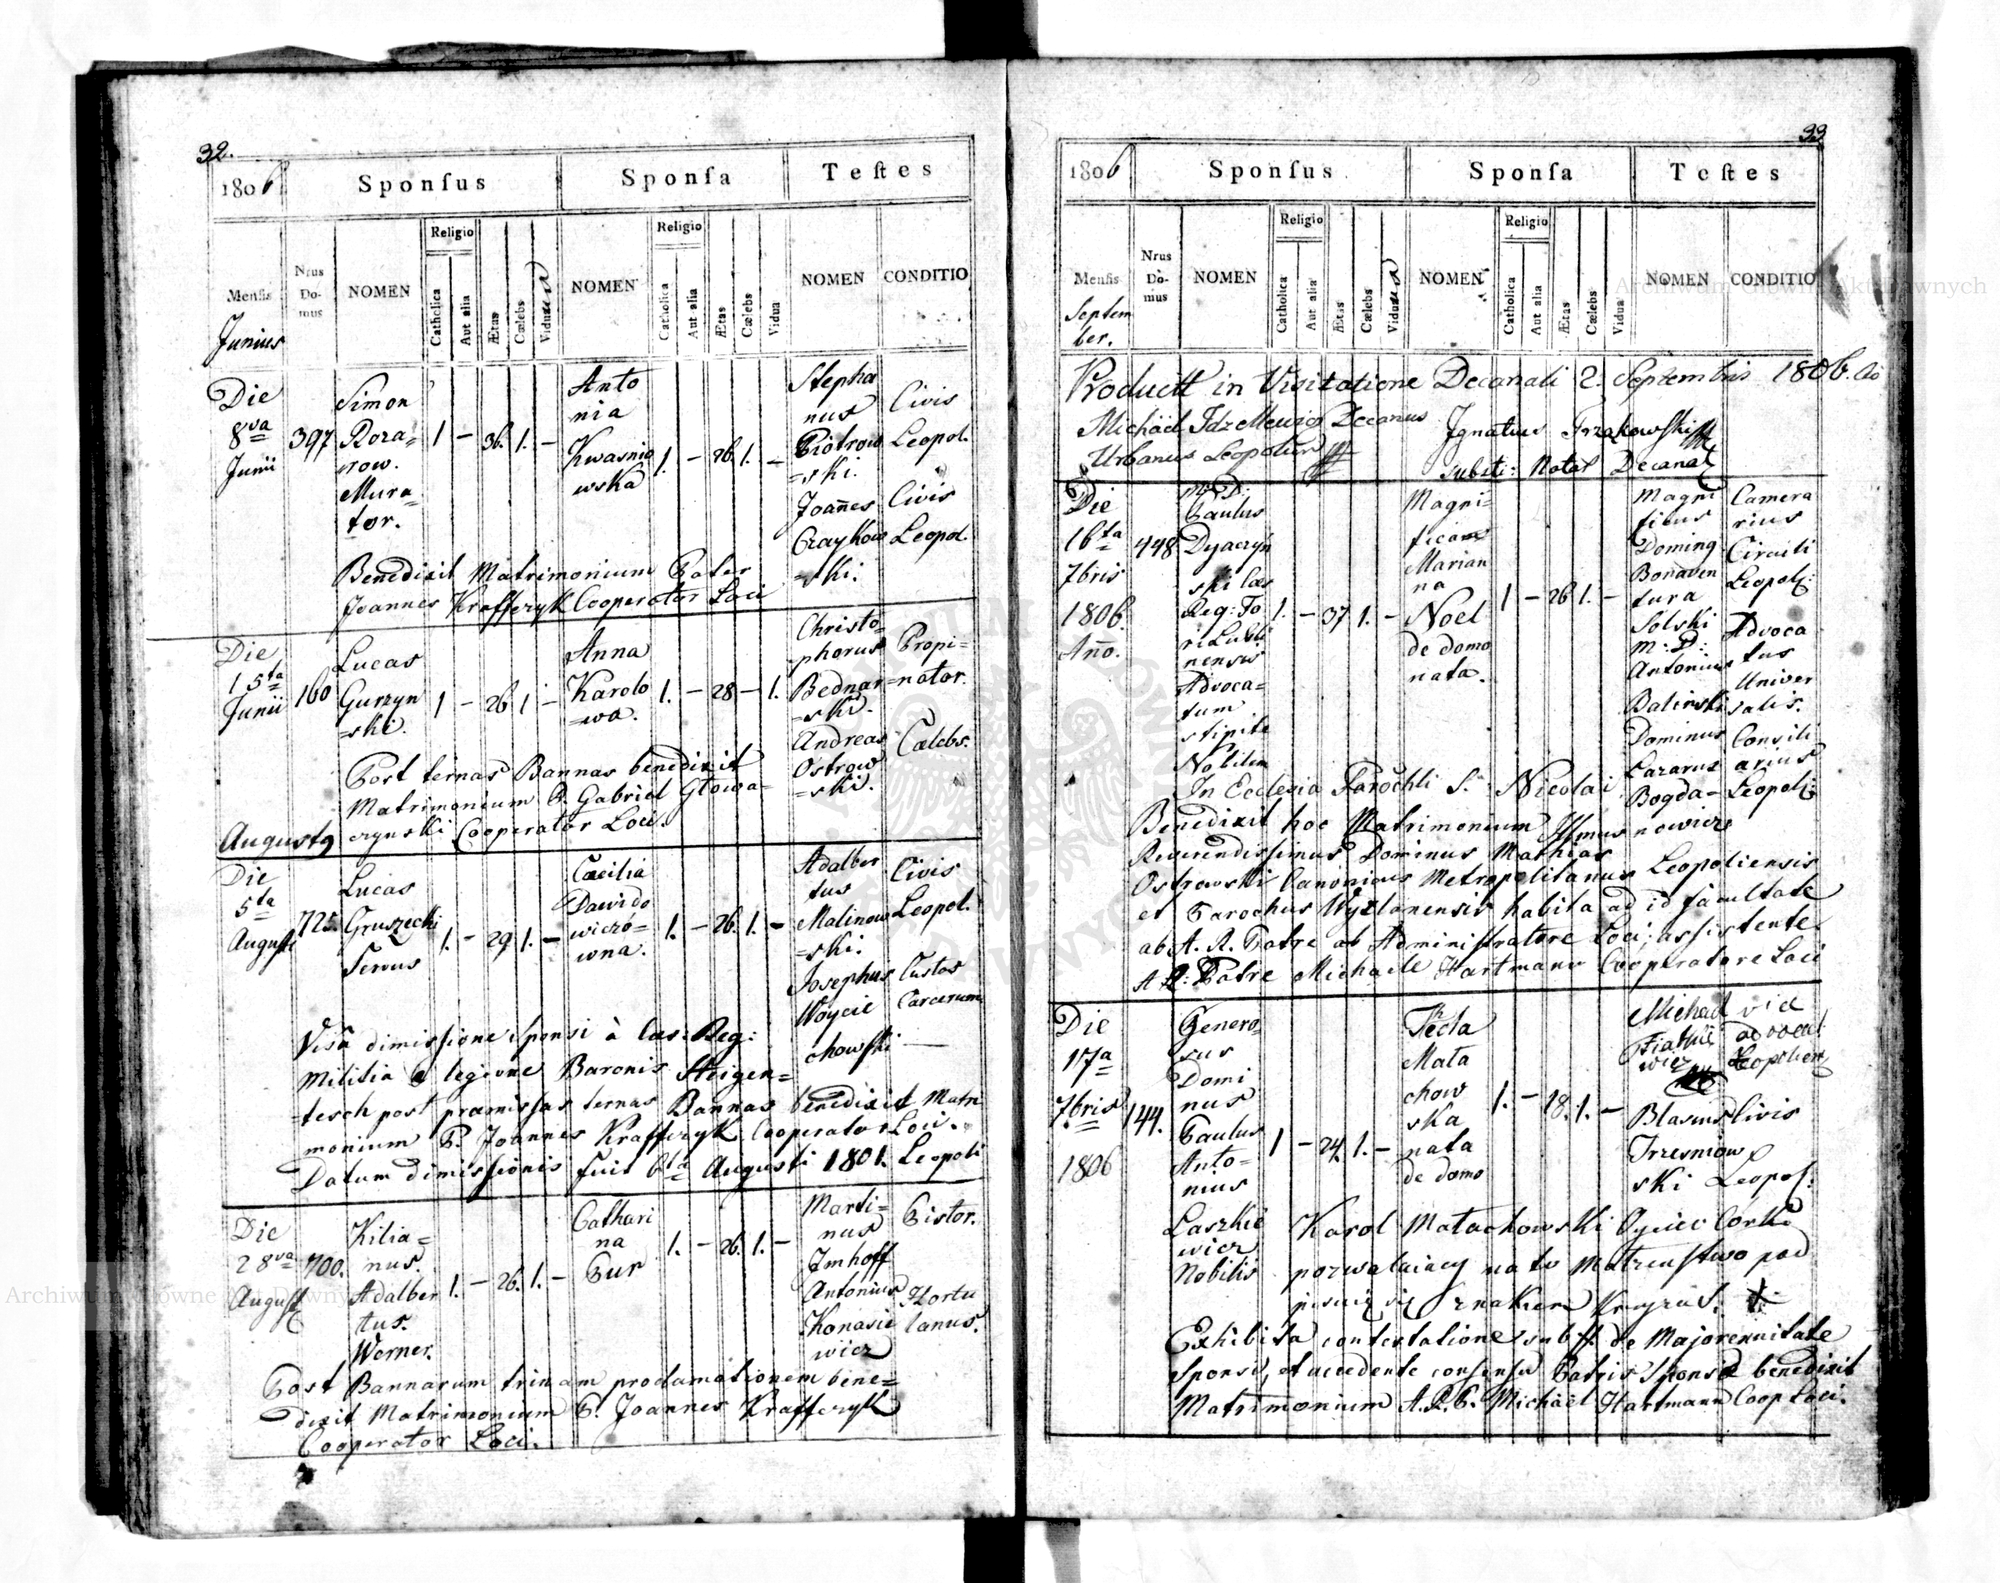 32.
1806 Sponſus Sponſa Teſtes
Religio Religio
Menſis Nrus Domus NOMEN Catholica Aut alia Ætas Cœlebs Viduus NOMEN Catholica Aut alia Ætas Cœlebs Vidua NOMEN CONDITIO
Junius
Die 8va Junii 397 Simon Murator. 1 – 36. 1. – Antonia Kwasniowska 1. – 26. 1. –
Stephanus Piotrow=ski. Civis Leopol.
Joannes Czaykow=ski. Civis Leopol.
Benedixit Matrimonium Pater
Joannes Krafferyk Cooperator Loci
Die 15ta Junii 160 Lucas Gurzyn=ski. 1 – 26 1 – Anna Karolo=wa. 1. – 28 – 1.
Christo=phorus Bednar=ski. Propi=nator.
Andreas Ostrow=ski. Cælebs.
Post ternas Bannas benedixit
Matrimonium P. Gabriel Głowa=
czynski Cooperator Loci.
Augustus
Die 5ta Augusti 725. Lucas Gruszecki Servus 1. – 29. 1. – Cæcilia Dawidowiczó=wna. 1. – 26. 1. –
Adalbertus Malinow=ski. Civis Leopol.
Josephus Woyciechowski Custos Carcerum
Visa dimissione sponsi à Cæs: Reg:
Militia e legione Baronis Steigen=
=tesch post præmissas ternas Bannas benedixit Matri
monium P. Joannes Krafferyk Cooperator Loci.
Datum dimissionis fuit 6ta Augusti 1801. Leopoli
Die 28va August 700. Kilia=nus. Adalbertus. Werner. 1. – 26. 1. – Catharina Pur 1. – 26. 1. –
Marti=nus Imhoff Pistor.
Antonius Konasiewicz Hortulanus.
Post Bannarum trinam proclamationem bene=
dixit Matrimonium P. Joannes Krafferyk
Cooperator Loci.
33
1806 Sponſus Sponſa Teſtes
Religio Religio
Menſis Nrus Domus NOMEN Catholica Aut alia Ætas Cœlebs Viduus NOMEN Catholica Aut alia Ætas Cœlebs Vidua NOMEN CONDITIO
September.
Product in Visitatione Decanali 2. Septembris 1806.
Michaël Decanus Ignatius
Urbanus Leopolien Substi: Notar Decanat
Die 16ta 7bris 1806. Año. 448 Paulus Dyaczyński Cæs Reg: Fori Lublinensis Advoca=tum stipite Nobilem 1. – 37 1. –
Magni=ficam Marianna Noel de domo nata. 1 – 26 1. –
Magnificus Doming Bonaventura Solski Camerarius Circuli Leopol:
M: D: Antonius Balinski Advocatus Universalis.
Dominus Lazarus Bogda=nowicz Consiliarius Leopol:
In Ecclesia Parochli S. Nicolai
Benedixit hoc Matrimonium Illmus
Reverendissimus Dominus Mathias
Ostrowski Canonicus Metropolitanus Leopoliensis
et Parochus habita ad id facultate
ab A. R. Patre ab Administratore Loci; assistente
A R: Patre Michaele Hartmann Cooperatore Loci
Die 17a 7bris 1806 144. Genero=sus Dominus Paulus Anto=nius Laszkiewicz Nobilis 1 – 24. 1. –
Tecla Małachowska nata de domo 1. – 18. 1. –
Michael advocat Leopolien
Blasius Trzesniowski Civis Leopol:
Karol Małachowski Oyciec Corki
pozwalaiący na to Małżeństwo pod
pisuię się znakiem Krzyża.
Exhibita contestatione sub de Majorennitate
Sponsi, et accedente consensu Patris Sponsæ benedixit
Matrimonium A.R.P. Michaël Hartmann Coop Loci.
Archiwum Główne Akt Dawnych
Archiwum Główne Akt Dawnych